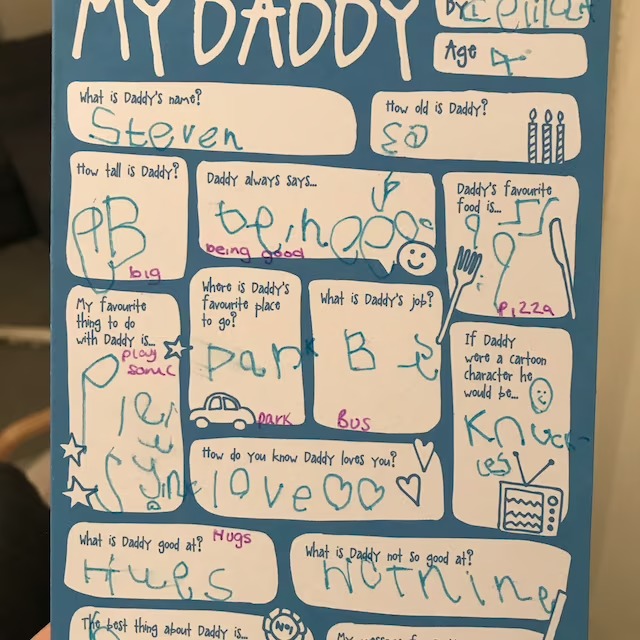 MY DADDY
By
Age 4
What is Daddy's name?
Steven
How old is Daddy?
How tall is Daddy?
big
Daddy always says...
being good
Daddy's favourite
food is...
Pizza
My favourite
thing to do
with Daddy is...
play
sonic
Where is Daddy's
favourite place
to go?
park
park
What is Daddy's job?
Bus
If Daddy
were a cartoon
character he
would be...
Knuck
les
How do you know Daddy loves you?
love
What is Daddy good at?
Hugs
Hugs
What is Daddy not so good at?
Nothing
The best thing about Daddy is...
No1